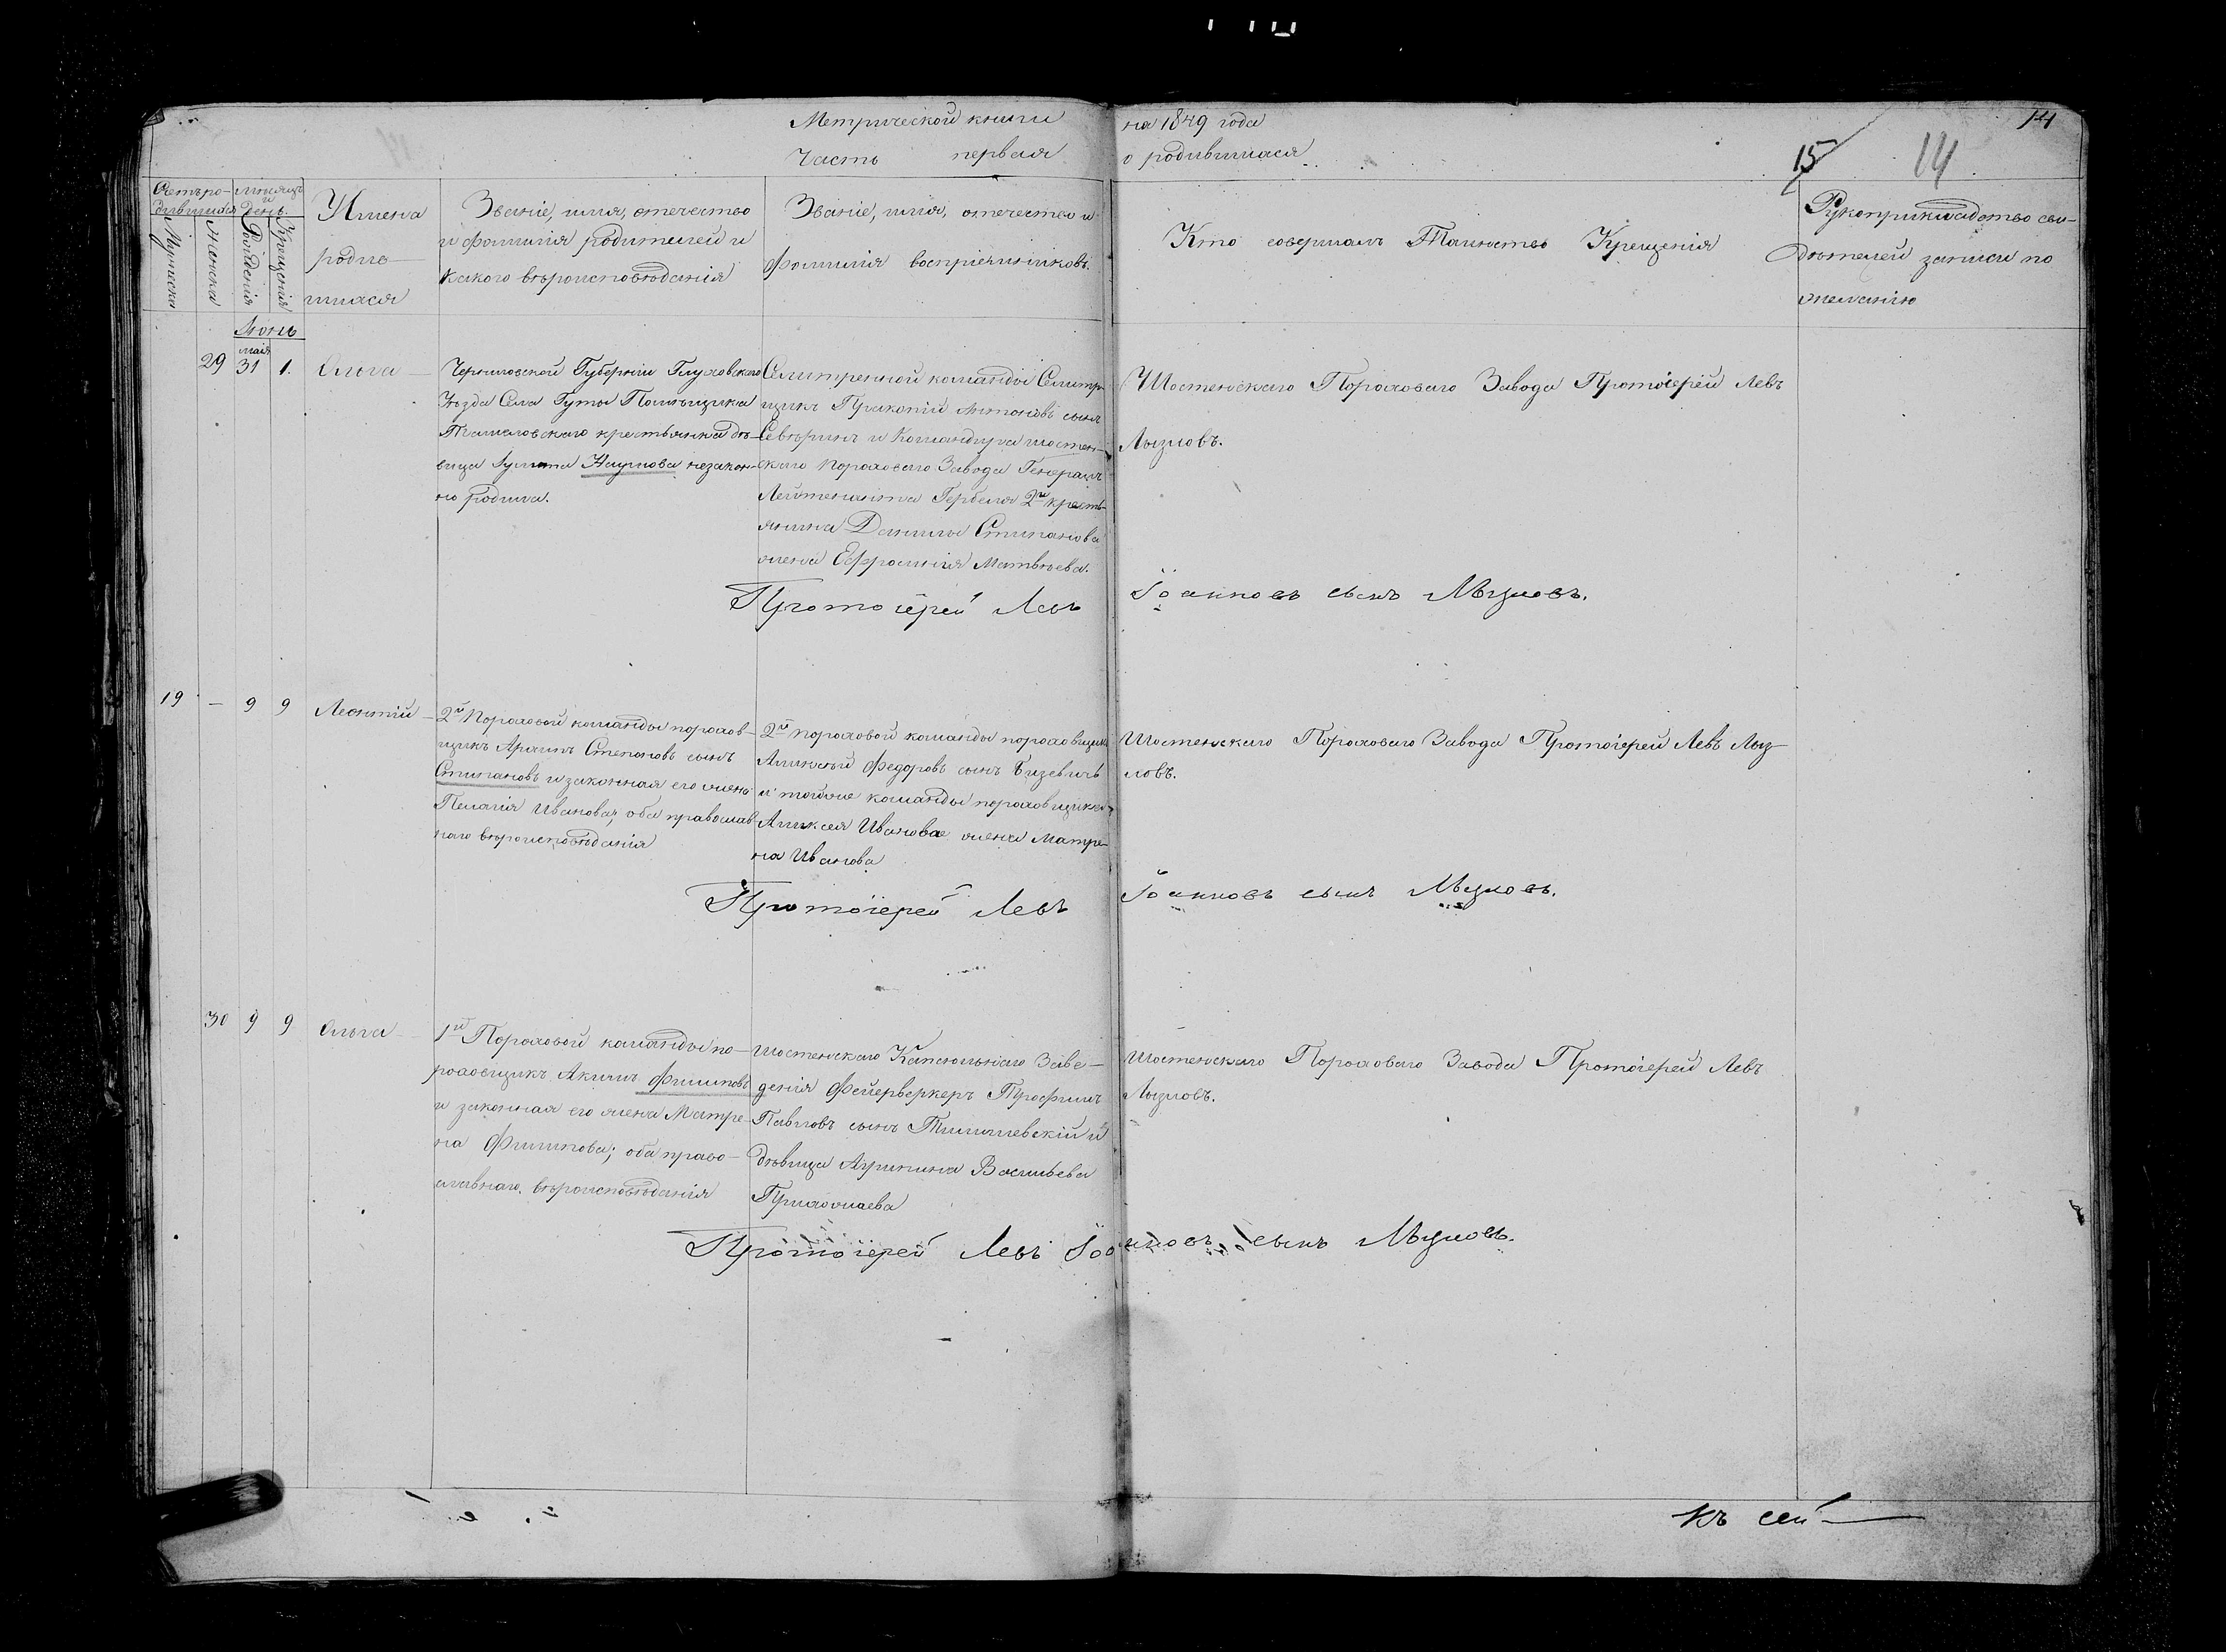 Метрической книги на 1849 года
Часть первая о родившихся
14
15
14
Счетъ ро-
дившихся
Мужеска
Женска
Мѣсяцъ
и
День.
Рожденія
Крещенія
Имена
родив-
шихся
Званіе, имя, отечество
и фамилія родителей и
какого вѣроисповѣданія
Званіе, имя, отечество и
фамилія воспріемниковъ.
Кто совершалъ Таинство Крещенія
Рукоприкладство сви-
дѣтелей записи по
желанію
Іюнь
29
маія
31
1.
Ольга
Черниговской Губерніи Глуховскаго
Уѣзда Села Гуты Помѣщика
крестьянка дѣ-
вица Наумова незакон-
но родила.
Селитренной команды Селитрен-
щикъ Прокопій Антоновъ сынъ
Севѣринъ и Командира шостен-
скаго пороховаго Завода Генералъ
Лейтенанта Гербеля 2го кресть-
янина Данилы Степанова
жена Ефросинія Матвѣева.
Шостенскаго Пороховаго Завода Протоіерей Левъ
Лызловъ.
Протоіерей Левъ Іоанновъ сынъ Лызловъ.
19
–
9
9
Леонтій
2й Пороховой команды порохов-
щикъ Степановъ сынъ
Степановъ и законная его жена
Пелагія Иванова, оба православ-
наго вѣроисповѣданія
2й пороховой команды пороховщикъ
Алексѣй Федоровъ сынъ Бизевичь
и тойже команды пороховщика
Алексея Иванова жена Матре-
на Иванова
Шостенскаго Пороховаго Завода Протоіерей Левъ Лыз-
ловъ.
Протоіерей Левъ Іоанновъ сынъ Лызловъ.
30
9
9
Ольга
1й Пороховой команды по-
роховщикъ Акимъ Филиповъ
и законная его жена Матре-
на Филипова; оба право-
славнаго вѣроисповѣданія
Шостенскаго Капсюльнаго Заве-
денія Фейерверкеръ Трофимъ
Павловъ сынъ и
дѣвица Агрипина Васильева
Шостенскаго Пороховаго Завода Протоіерей Левъ
Лызловъ.
Протоіерей Левъ Іоанновъ сынъ Лызловъ.
Къ сей